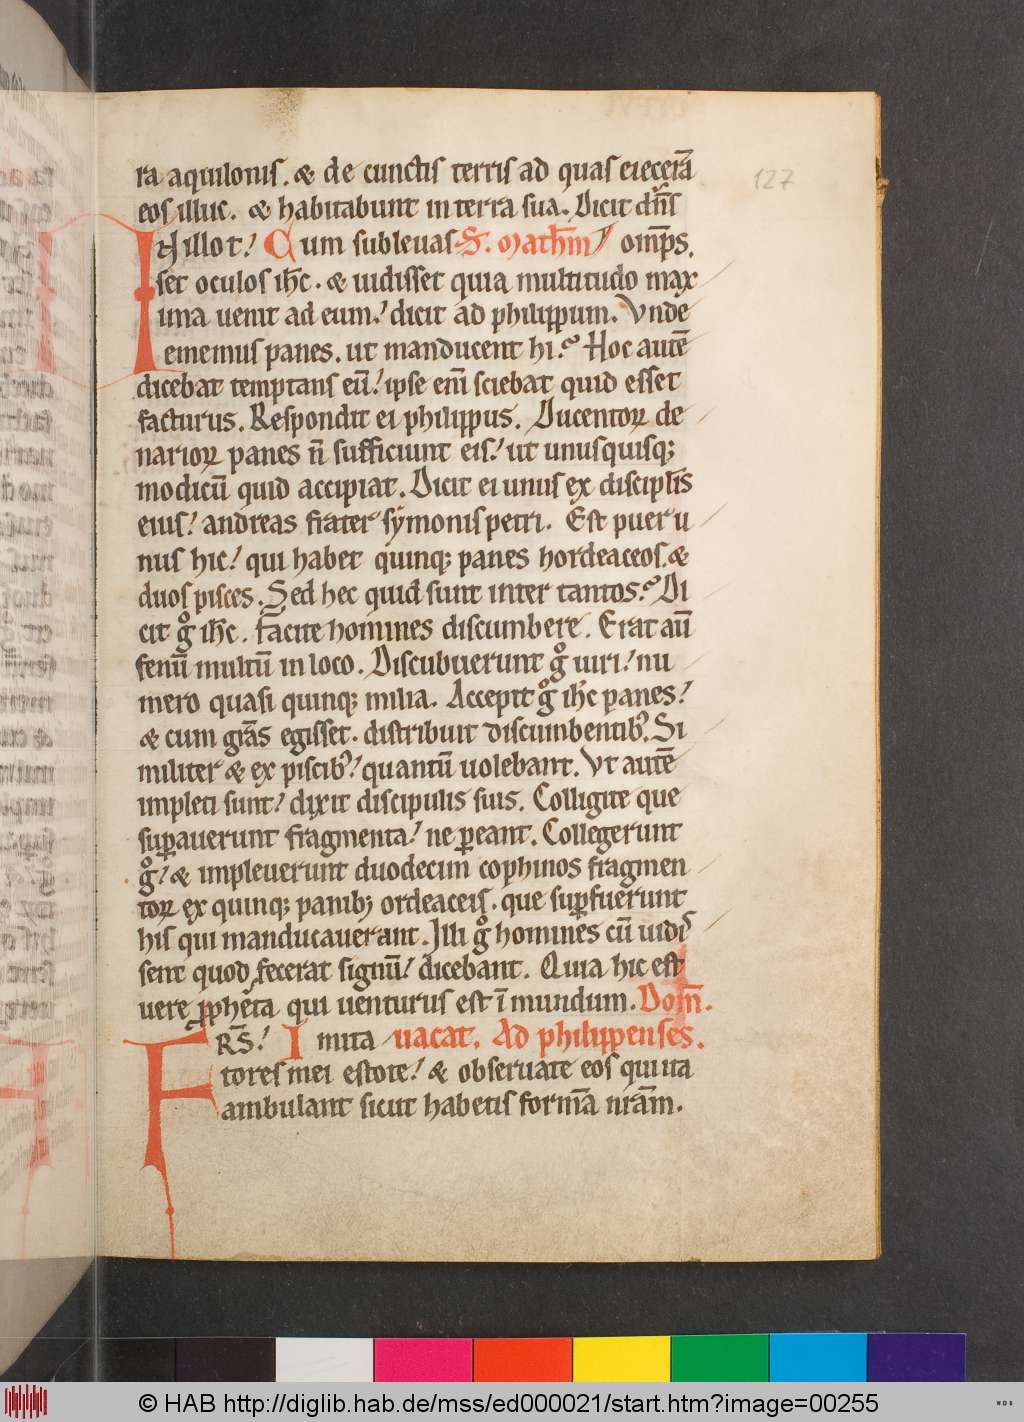 ra aquilonis. & de cunctis terris ad quas eiecerā
eos illuc. & habitabunt in terra sua. Dicit dn̄s
IN illo t̄! Cum subleuas S. Math̄m om̄ps.
set oculos ih̄c. & uidisset quia multitudo max
ima uenit ad eum! dicit ad philippum. Vnde
ememus panes. ut manducent hi? Hoc autē
dicebat temptans eū! ipse eni̅ sciebat quid esset
facturus. Respondit ei philippus. Ducentoꝝ de
narioꝝ panes n̄ sufficiunt eis! ut unusquisq;
modicū quid accipiat. Dicit ei unus ex disciplis
eius! andreas frater symonis petri. Est puer u
nus hic! qui habet quinq; panes hordeaceos. &
duos pisces. Sed hec quid sunt inter tantos? Di
cit gͦ ih̄c. Facite homines discumbere. Erat aū
fenū multū in loco. Discubuerunt gͦ uiri! nu
mero quasi quinq; milia. Accepit gͦ ih̄c panes!
& cum grās egisset. distribuit discumbentibꝰ. Si
militer & ex piscibꝰ! quantū uolebant. Vt autē
impleti sunt! dixit discipulis suis. Colligite que
suꝑauerunt fragmenta! ne ꝑeant. Collegerunt
gͦ! & impleuerunt duodecim cophinos fragmen
toꝝ ex quinq; panib; ordeaceis. que suꝑfuerunt
his qui manducauerant. Illi gͦ homines cū uidis
sent quod fecerat signū! dicebant. Quia hic est
uere ꝓphēta qui uenturus est ī mundum. Dom̄.
FRS̄! Imita uacat. Ad philippenses.
tores mei estote! & obseruate eos qui ita
ambulant sicut habetis formā nrām.
127
© HAB http://diglib.hab.de/mss/ed000021/start.htm?image=00255